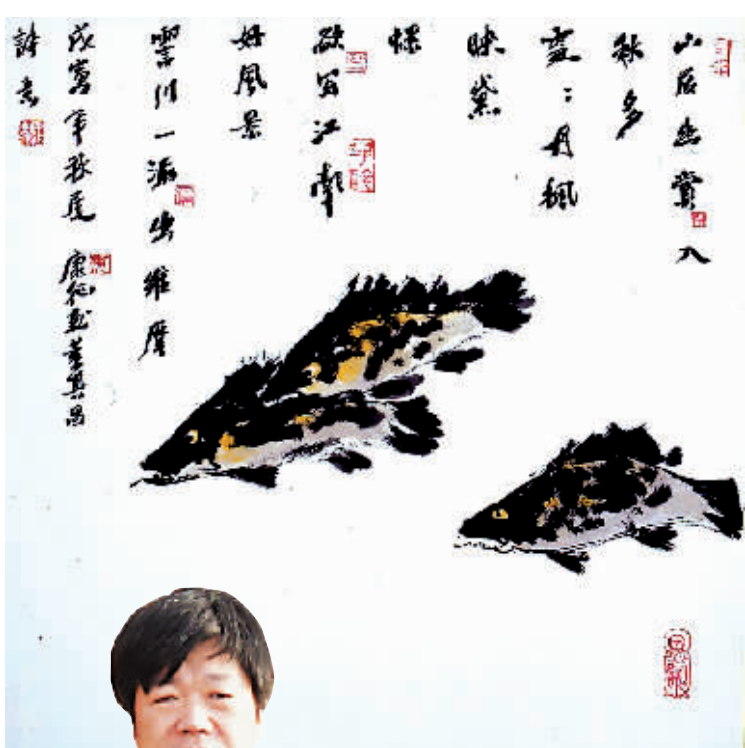 山居幽賞入
秋多
處：丹楓
映黛
螺
欲寫江南
好風景
雲川一派出維摩
戊寅年秋尾 康征 董其昌
詩意